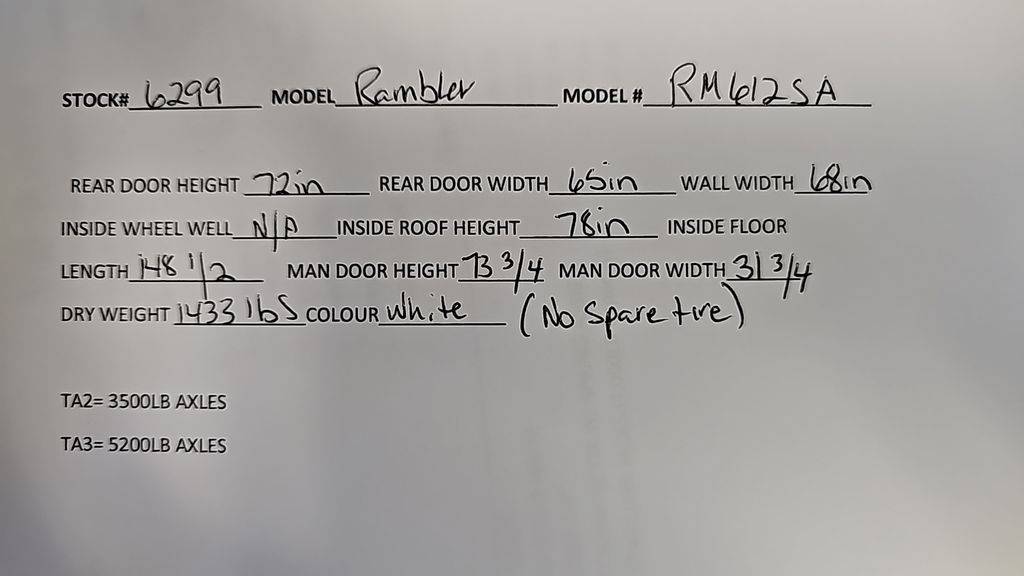 STOCK# 6299 MODEL Rambler MODEL # RM612SA
REAR DOOR HEIGHT 72in REAR DOOR WIDTH 65in WALL WIDTH 68in
INSIDE WHEEL WELL N/A INSIDE ROOF HEIGHT 78in INSIDE FLOOR
LENGTH 148 1/2 MAN DOOR HEIGHT 73 3/4 MAN DOOR WIDTH 31 3/4
DRY WEIGHT 1433 lbs COLOUR White (No Spare tire)
TA2= 3500LB AXLES
TA3= 5200LB AXLES